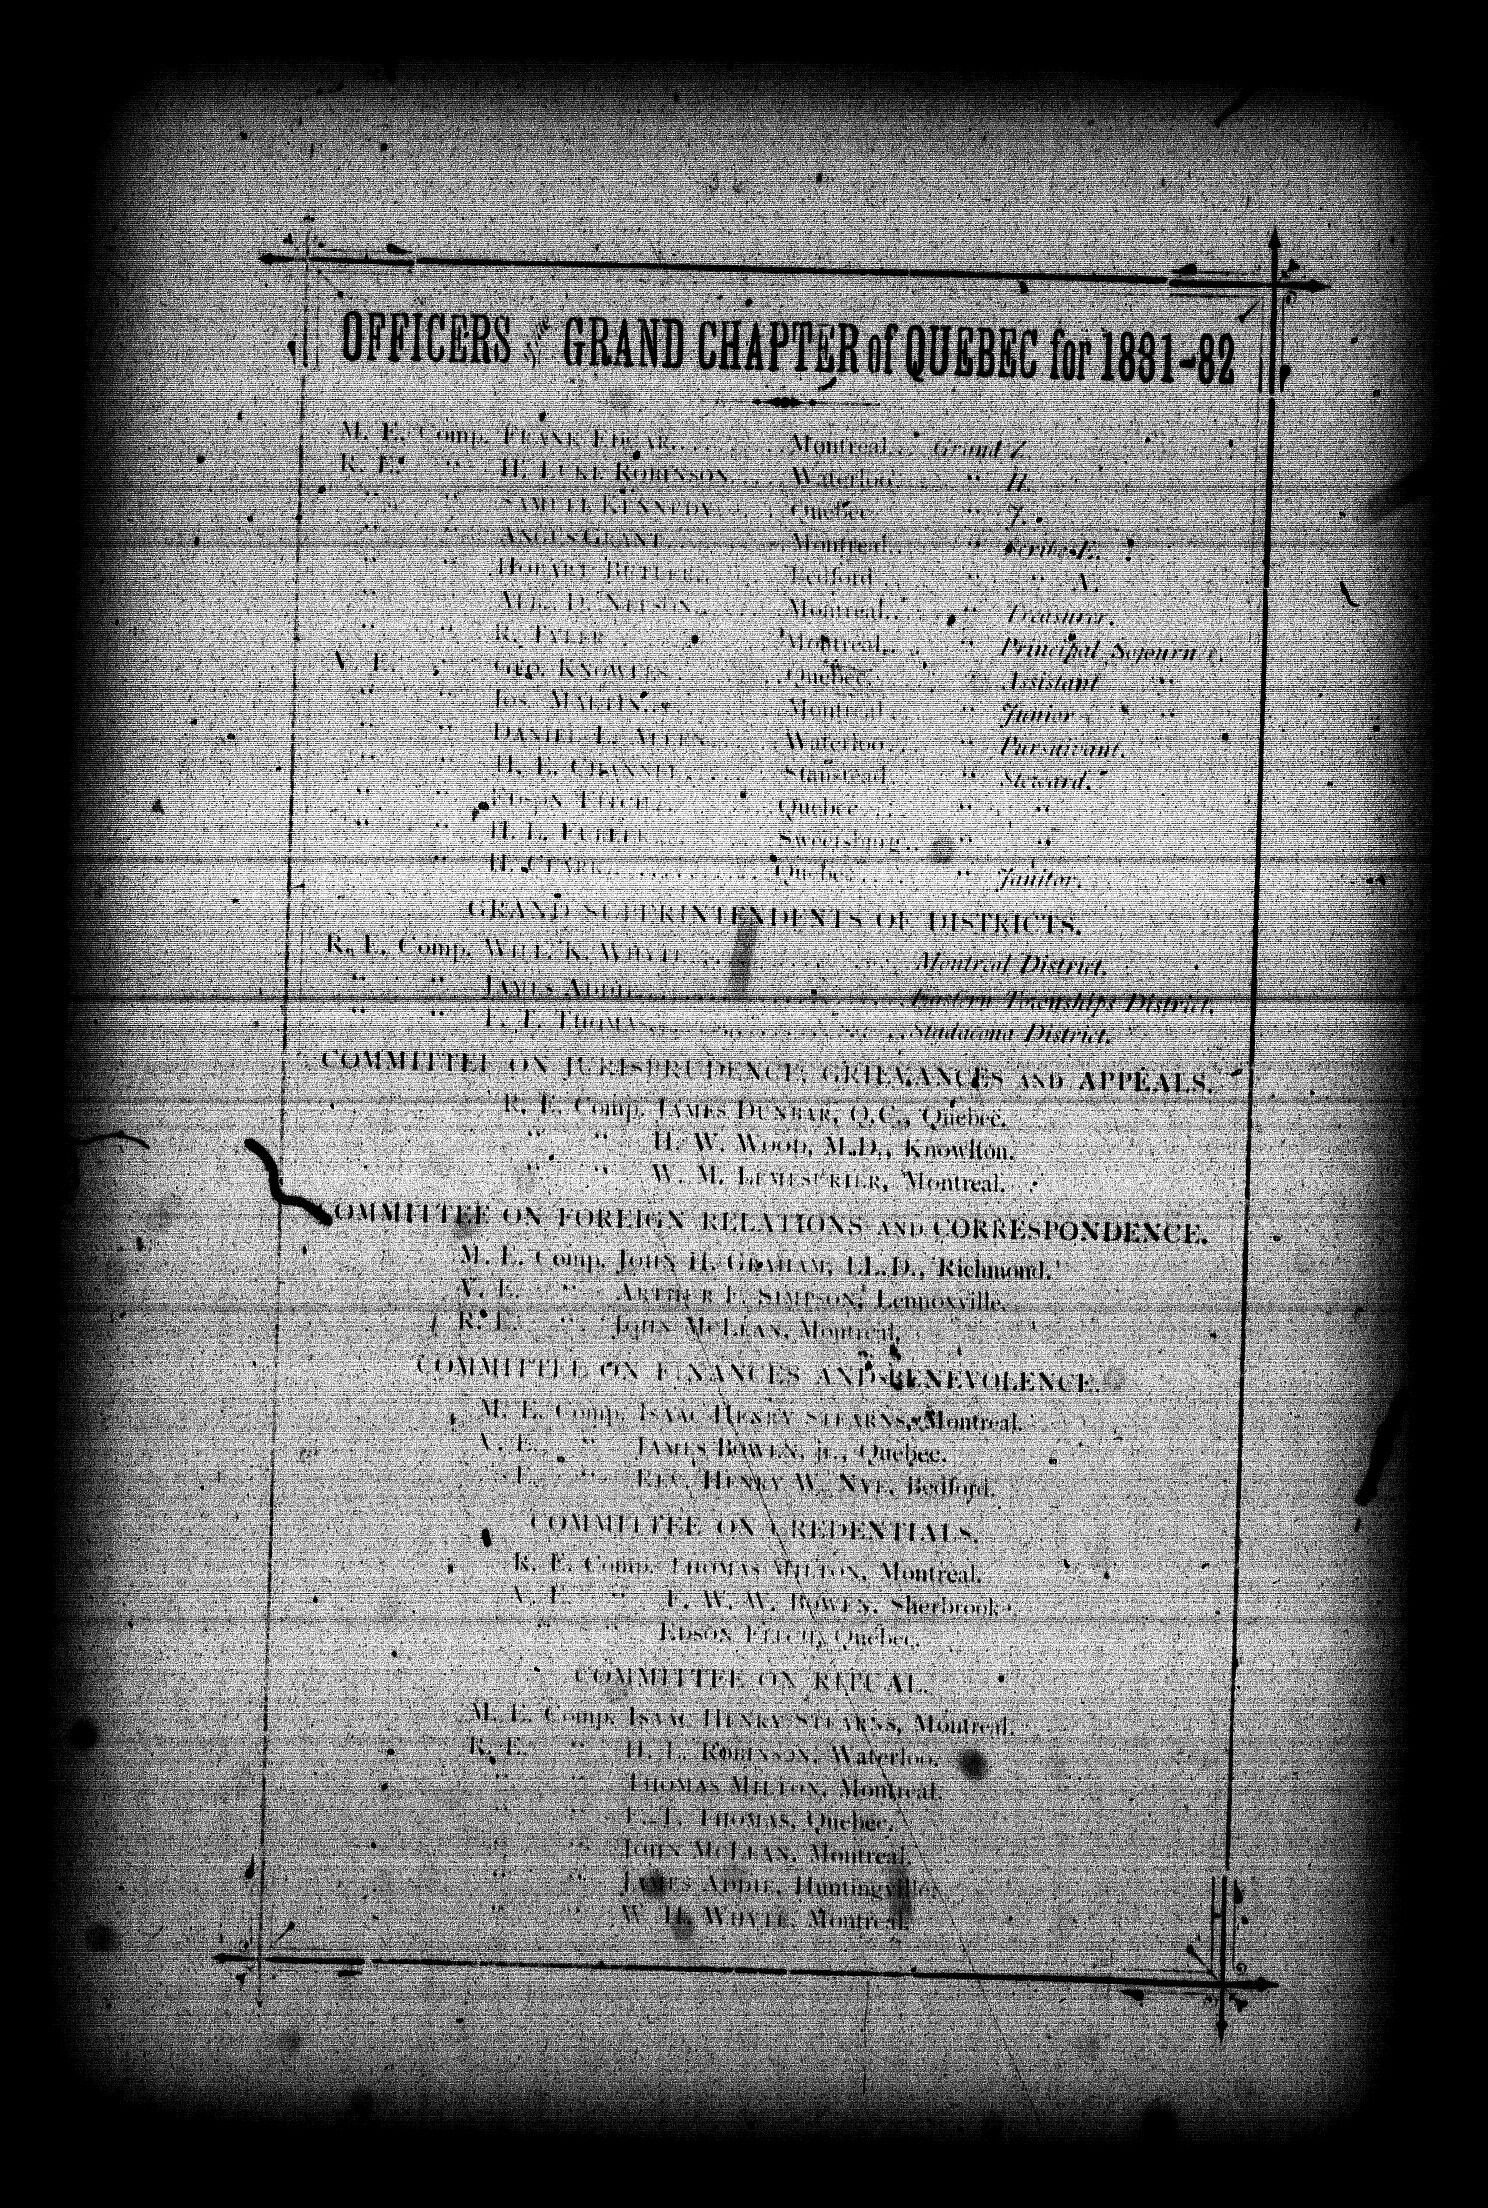 OFFICERS GRAND CHAPTER of QUEBEC for 1881-82
M. E. Comp. FRANK EDGAR.......... Montreal... Grand Z.
R. E. " H. LUKE ROBINSON.... Waterloo.... " H.
" " SAMUEL KENNEDY..... Quebec " J.
" " ANGUS GRANT........... Montreal.. " Scribe E.
" " HOBART BUTLER.. Bedford .. " " N.
" " D. NELSON......... Montreal.. " Treasurer.
" " R. TYLER Montreal.. " Principal Sojourner.
V. E. " GEO. KNOWLES. ..Quebec. " Assistant "
" " JOS. MARTIN... Montreal.. " Junior "
" " DANIEL L. ALLEN....... Waterloo... " Pursuivant.
" " H. E. CHANNELL...... Stanstead. " Steward.
" " EDSON FITCH... Quebec ... " "
" " H. L. FULLER... ... Sweetsburg.. " "
" H. CLARK............... Quebec..... " Janitor.
GRAND SUPERINTENDENTS OF DISTRICTS.
R. E. Comp. WHYTE............. Montreal District.
" " JAMES ADDIE.................... Eastern Townships District.
" " E. T. THOMAS.................. Stadacona District.
COMMITTEE ON JURISPRUDENCE, GRIEVANCES AND APPEALS.
R. E. Comp. JAMES DUNBAR, Q.C., Quebec.
" " H. W. WOOD, M.D., Knowlton.
" " W. M. LEMESURIER, Montreal.
COMMITTEE ON FOREIGN RELATIONS AND CORRESPONDENCE.
M. E. Comp. JOHN H. GRAHAM, LL.D., Richmond.
V. E. " ARTHUR F. SIMPSON, Lennoxville.
R. E. " JOHN MCLEAN, Montreal.
COMMITTEE ON FINANCES AND BENEVOLENCE.
M. E. Comp. ISAAC HENRY STEARNS, Montreal.
V. E. " JAMES BOWEN, jr., Quebec.
" E. " REV. HENRY W. NYE, Bedford.
COMMITTEE ON CREDENTIALS.
R. E. Comp. THOMAS MILTON, Montreal.
V. E. " F. W. W. BOWEN, Sherbrooke.
" " EDSON FITCH, Quebec.
COMMITTEE ON RITUAL.
M. E. Comp. ISAAC HENRY STEARNS, Montreal.
R. E. " H. L. ROBINSON, Waterloo.
" " THOMAS MILTON, Montreal.
" " E. T. THOMAS, Quebec.
" " JOHN MCLEAN, Montreal.
" " JAMES ADDIE, Huntingville.
" " W. H. WHYTE, Montreal.